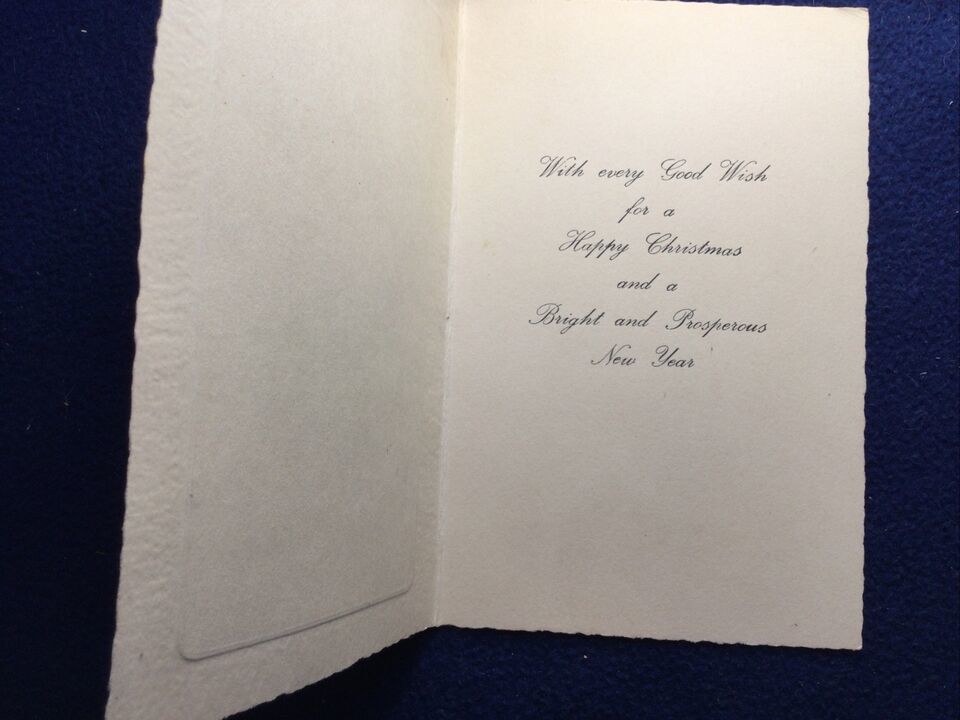 With every Good Wish
for a
Happy Christmas
and a
Bright and Prosperous
New Year